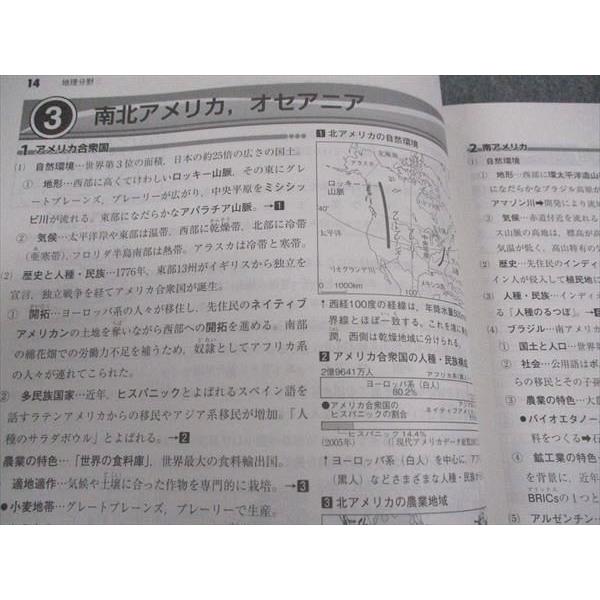 14 地理分野
3 南北アメリカ，オセアニア
1 アメリカ合衆国
(1) 自然環境…世界第3位の面積，日本の約25倍の広さの国土。
① 地形…西部に高くてけわしいロッキー山脈，その東にグレ
ートプレーンズ，プレーリーが広がり，中央平原をミシシッ
ピ川が流れる。東部になだらかなアパラチア山脈。→1
② 気候…太平洋岸や東部は温帯，西部に乾燥帯，北部に冷帯
(亜寒帯)，フロリダ半島南部は熱帯。アラスカは冷帯と寒帯。
(2) 歴史と人種・民族…1776年，東部13州がイギリスから独立を
宣言，独立戦争を経てアメリカ合衆国が誕生。
① 開拓…ヨーロッパ系の人々が移住し，先住民のネイティブ
アメリカンの土地を奪いながら西部への開拓を進める。南部
の綿花畑での労働力不足を補うため，奴隷としてアフリカ系
の人々が連れてこられた。
② 多民族国家…近年，ヒスパニックとよばれるスペイン語を
話すラテンアメリカからの移民やアジア系移民が増加。「人
種のサラダボウル」とよばれる。→2
農業の特色…「世界の食料庫」，世界最大の食料輸出国。
適地適作…気候や土壌に合った作物を専門的に栽培。→3
●小麦地帯…グレートプレーンズ，プレーリーで生産。
1 北アメリカの自然環境
北極海
アラスカ
ロッキー
山脈
40°
太平洋
リオグランデ川
メキシコ
0 1000km
↑西経100度の経線は，年間水量50
界線とほぼ一致する。これを境に東
潤，西側は乾燥地域に分けられる。
2 アメリカ合衆国の人種・民族構成
2億9641万人
ヨーロッパ系(白人)
80.2%
アフリカ系(黒
●アメリカ合衆国の
ヒスパニックの割合
ネイティブアメリ
ヒスパニック 14.4%
(2005年)
(「現代アメリカデータ総覧
↑ヨーロッパ系(白人)を中心に，アフ
(黒人)などさまざまな人種・民族が
3 北アメリカの農業地域
2 南アメリカ
(1) 自然環境
① 地形…西部に環太平洋造山
になだらかなブラジル高原が
アマゾン川→開発により流
③ 気候…赤道付近を流れる
ス山脈の高地は，標高が高
気温が低く，高山特有の
(2) 歴史…先住民のインディ
イン人が侵入して植民地に
(3) 人種・民族…インディ
る「人種のるつぼ」。→5
(4) ブラジル…南アメリカ
① 国土と人口…世界
② 社会…公用語はポ
らの移民とその子孫
③ 農業の特色…大
●バイオエタノー
料をつくる→石
④ 鉱工業の特色
を背景に，近年
BRICsの1つと
(5) アルゼンチン…